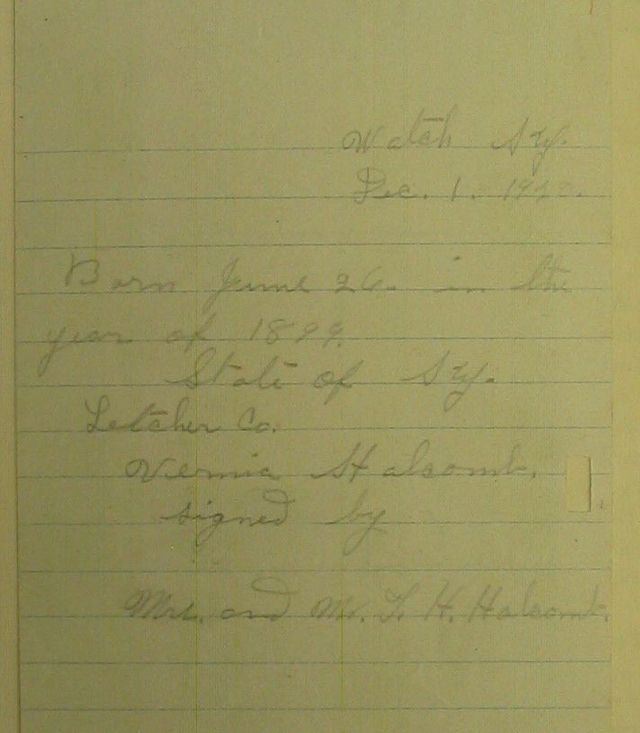 Watch Ky.
Dec. 1. 
Born June 26. in the
year of 1899.
State of Ky.
Letcher Co.
Vernia Halcomb.
signed by
Mrs. and Mr. H. Halcomb.